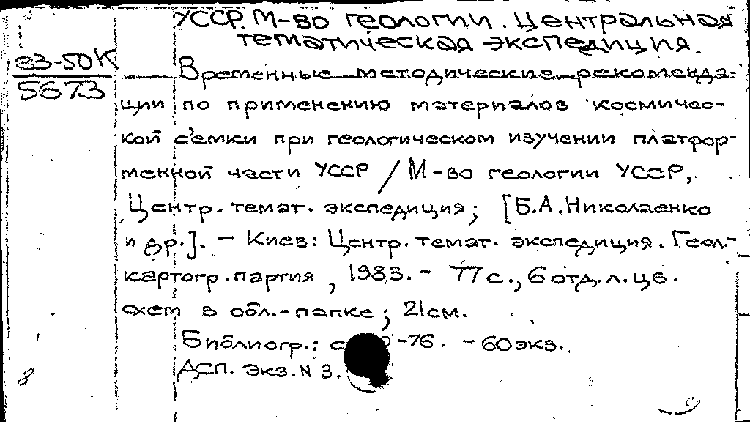 УССР. М-во геологии. Центральная
тематическая экспедиция.
вз-50К
5673
Временные методические рекоменда-
ции по применению материалов космичес-
кой съемки при геологическом изучении платфор-
менной части УССР / М-во геологии УССР,
Центр. темат. экспедиция; [Б.А. Николаенко
и др.]. – Киев: Центр. темат. экспедиция. Геол.-
картогр. партия, 1983. – 77 с., 6 отд. л. цв.
схем в обл.-папке; 21 см.
Библиогр.: с. -76. – 60 экз.
ДСП. Экз. N 3.
8